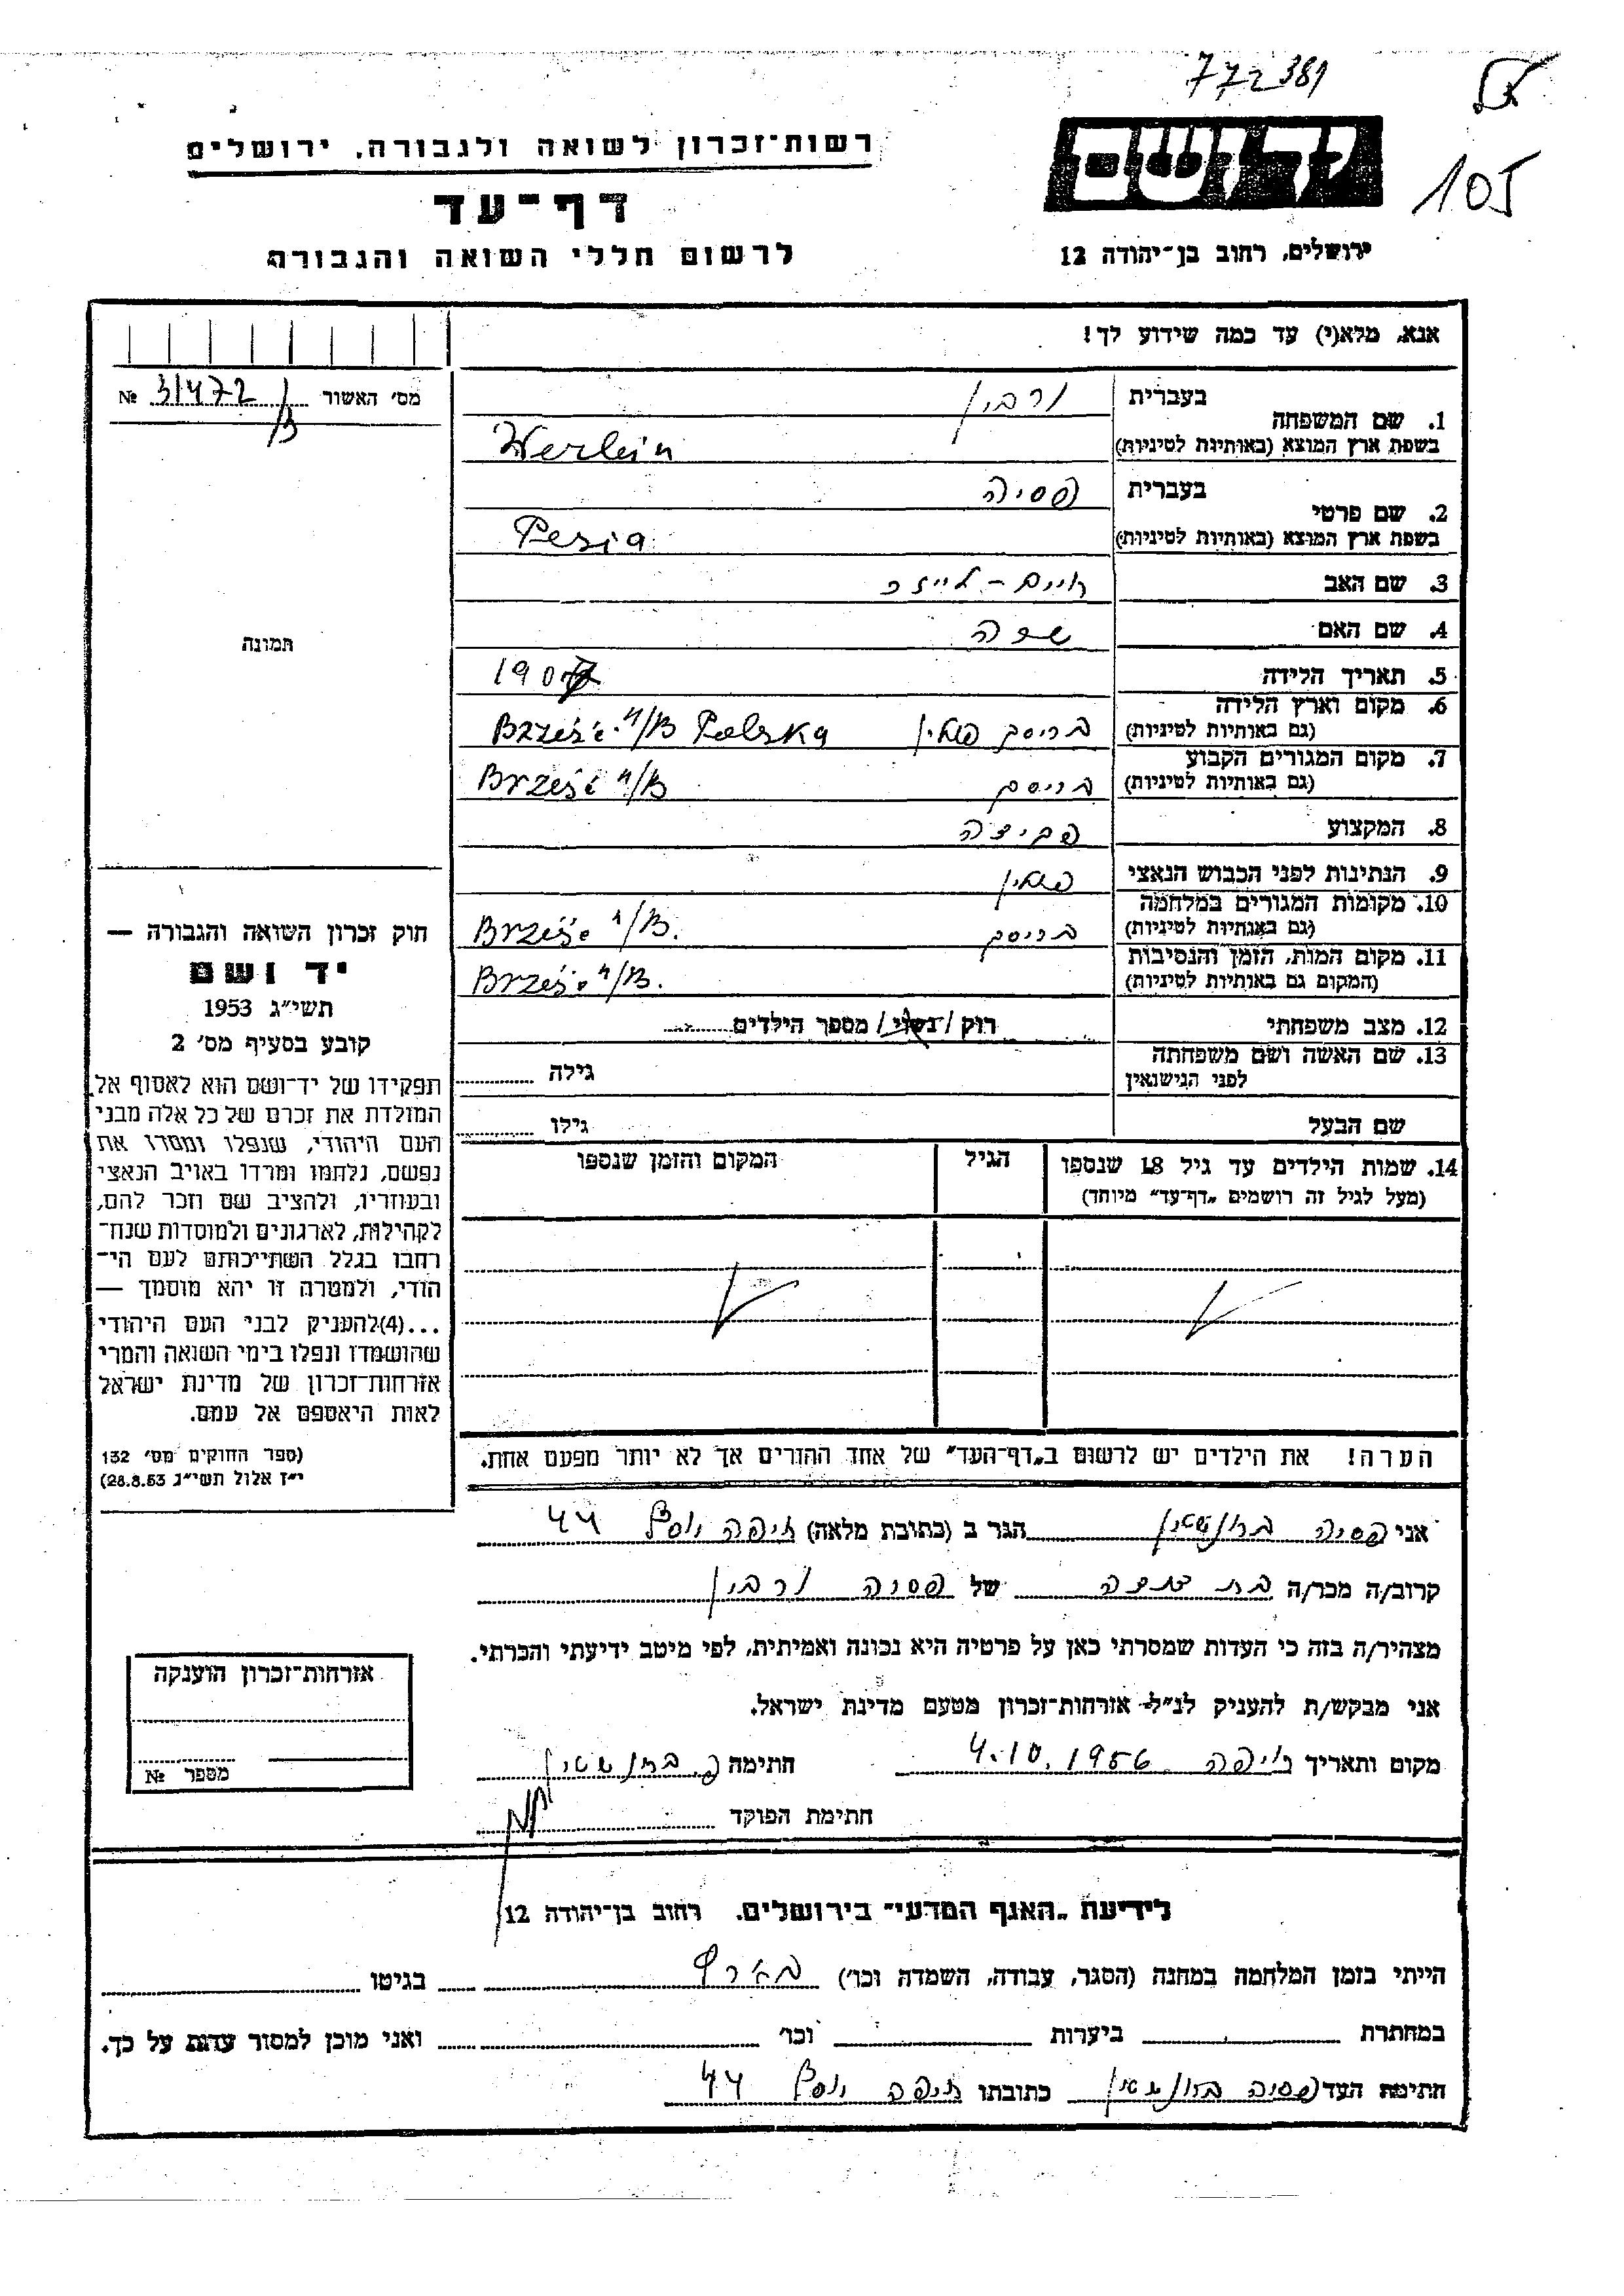 772381
105
יד ושם
רשות־זכרון לשואה ולגבורה, ירושלים
דף־עד
ירושלים, רחוב בן־יהודה 12
לרשום חללי השואה והגבורה
אנא, מלא(י) עד כמה שידוע לך!
מס׳ האשור 31472 №
/B
1. שם המשפחה
בעברית ורבין
בשפת ארץ המוצא (באותיות לטיניות) Werbin
2. שם פרטי
בעברית פסיה
בשפת ארץ המוצא (באותיות לטיניות) Pesia
3. שם האב חיים-לייזר
4. שם האם שרה
תמונה
5. תאריך הלידה 190
6. מקום וארץ הלידה
(גם באותיות לטיניות) בריסק פולין Brześć n/B Polska
7. מקום המגורים הקבוע
(גם באותיות לטיניות) בריסק Brześć n/B
8. המקצוע
9. הנתינות לפני הכבוש הנאצי פולין
10. מקומות המגורים במלחמה
(גם באותיות לטיניות) בריסק Brześć n/B.
11. מקום המות, הזמן והנסיבות
(המקום גם באותיות לטיניות) Brześć n/B.
12. מצב משפחתי רוק / נשוי / מספר הילדים
13. שם האשה ושם משפחתה
לפני הנישואין גילה
שם הבעל גילו
14. שמות הילדים עד גיל 18 שנספו הגיל המקום והזמן שנספו
(מעל לגיל זה רושמים „דף־עד” מיוחד)
הערה! את הילדים יש לרשום ב„דף־העד” של אחד ההורים אך לא יותר מפעם אחת.
חוק זכרון השואה והגבורה —
יד ושם
תשי״ג 1953
קובע בסעיף מס׳ 2
תפקידו של יד־ושם הוא לאסוף אל
המולדת את זכרם של כל אלה מבני
העם היהודי, שנפלו ומסרו את
נפשם, נלחמו ומרדו באויב הנאצי
ובעוזריו, ולהציב שם וזכר להם,
לקהילות, לארגונים ולמוסדות שנח־
רבו בגלל השתייכותם לעם הי־
הודי, ולמטרה זו יהא מוסמך —
...(4)להעניק לבני העם היהודי
שהושמדו ונפלו בימי השואה והמרי
אזרחות־זכרון של מדינת ישראל
לאות היאספם אל עמם.
(ספר החוקים מס׳ 132
י״ז אלול תשי״ג 28.8.53)
אני פסיה ברונשטיין הגר ב (כתובת מלאה) חיפה יוסף 44
קרוב/ה מכר/ה בת דודה של פסיה ורבין
מצהיר/ה בזה כי העדות שמסרתי כאן על פרטיה היא נכונה ואמיתית, לפי מיטב ידיעתי והכרתי.
אני מבקש/ת להעניק לנ״ל אזרחות־זכרון מטעם מדינת ישראל.
מקום ותאריך חיפה 4.10.1956 חתימה פ. ברונשטיין
חתימת הפוקד
אזרחות־זכרון הוענקה
מספר №
לידיעת „האגף המדעי” בירושלים, רחוב בן־יהודה 12
הייתי בזמן המלחמה במחנה (הסגר, עבודה, השמדה וכו׳) בארץ בגיטו
במחתרת ביערות וכו׳ ואני מוכן למסור עדות על כך.
חתימת העד פסיה ברונשטיין כתובתו חיפה יוסף 44